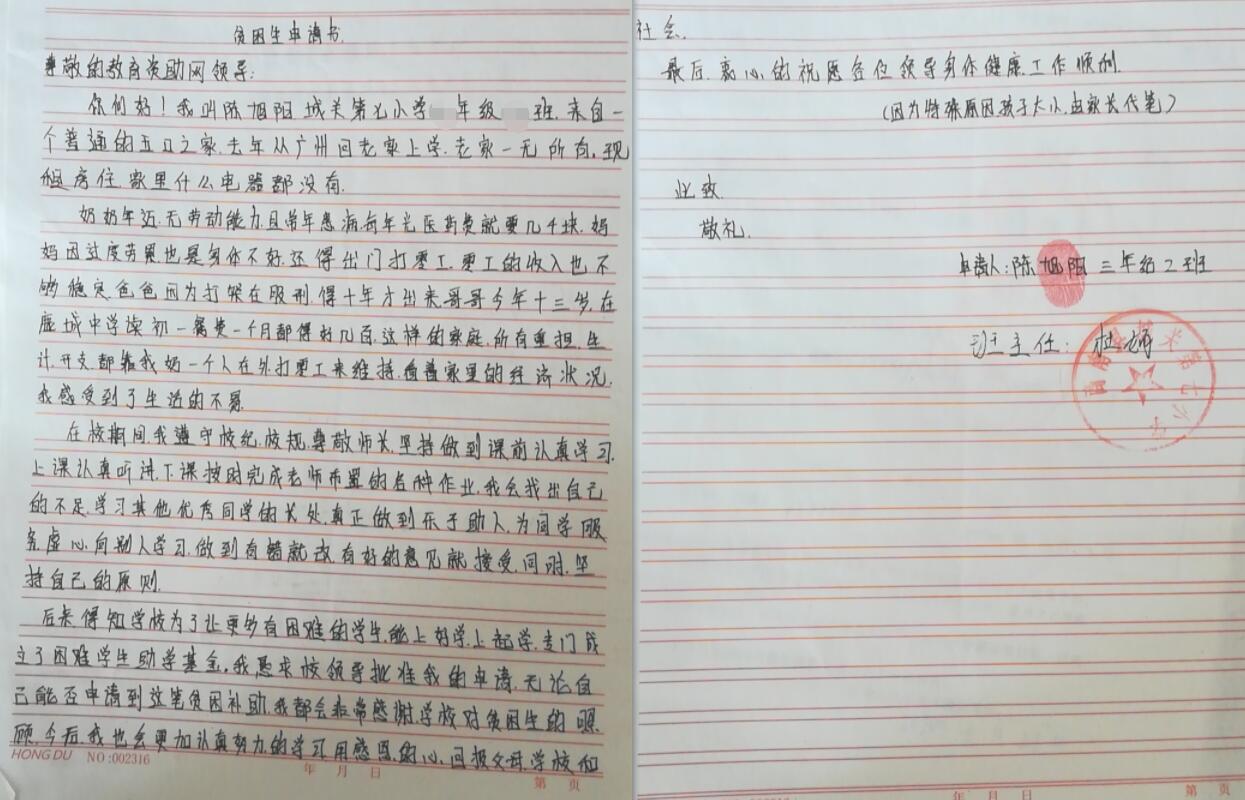 贫困生申请书.
尊敬的教育资助网领导:
你们好!我叫陈旭阳城关第七小学 年级 班.来自一
个普通的五口之家.去年从广州回老家上学.老家一无所有.现
租房住.家里什么电器都没有.
奶奶年迈.无劳动能力.且常年患病每年光医药费就要几千块.妈
妈因过度劳累.也是身体不好.还得出门打零工.零工的收入也不
够稳定.爸爸因为打架在服刑.得十年才出来哥哥今年十三岁.在
虞城中学读初一餐费一个月都得好几百.这样的家庭.所有重担.生
计.开支.都靠我妈一个人在外打零工来维持.看着家里的经济状况.
我感受到了生活的不易.
在校期间.我遵守校纪.校规.尊敬师长.坚持做到课前认真学习.
上课认真听讲.下课按时完成老师布置的各种作业.我会找出自己
的不足.学习其他优秀同学的长处.真正做到乐于助人.为同学服
务.虚心向别人学习.做到有错就改.有好的意见就接受.同时.坚
持自己的原则.
后来得知学校为了让更多有困难的学生.能上好学.上起学.专门成
立了困难学生助学基金.我恳求校领导批准我的申请.无论自
己能否申请到这笔贫困补助.我都会非常感谢.学校对贫困生的照
顾.今后.我也会更加认真努力的学习.用感恩的心.回报父母.学校和
HONG DU NO:002316
年 月 日
第 页
社会.
最后.衷心的祝愿各位领导身体健康.工作顺利.
(因为特殊原因.孩子太小.由家长代笔)
此致
敬礼.
申请人:陈旭阳 三年级2班
班主任: 杜
年 月 日
第 页